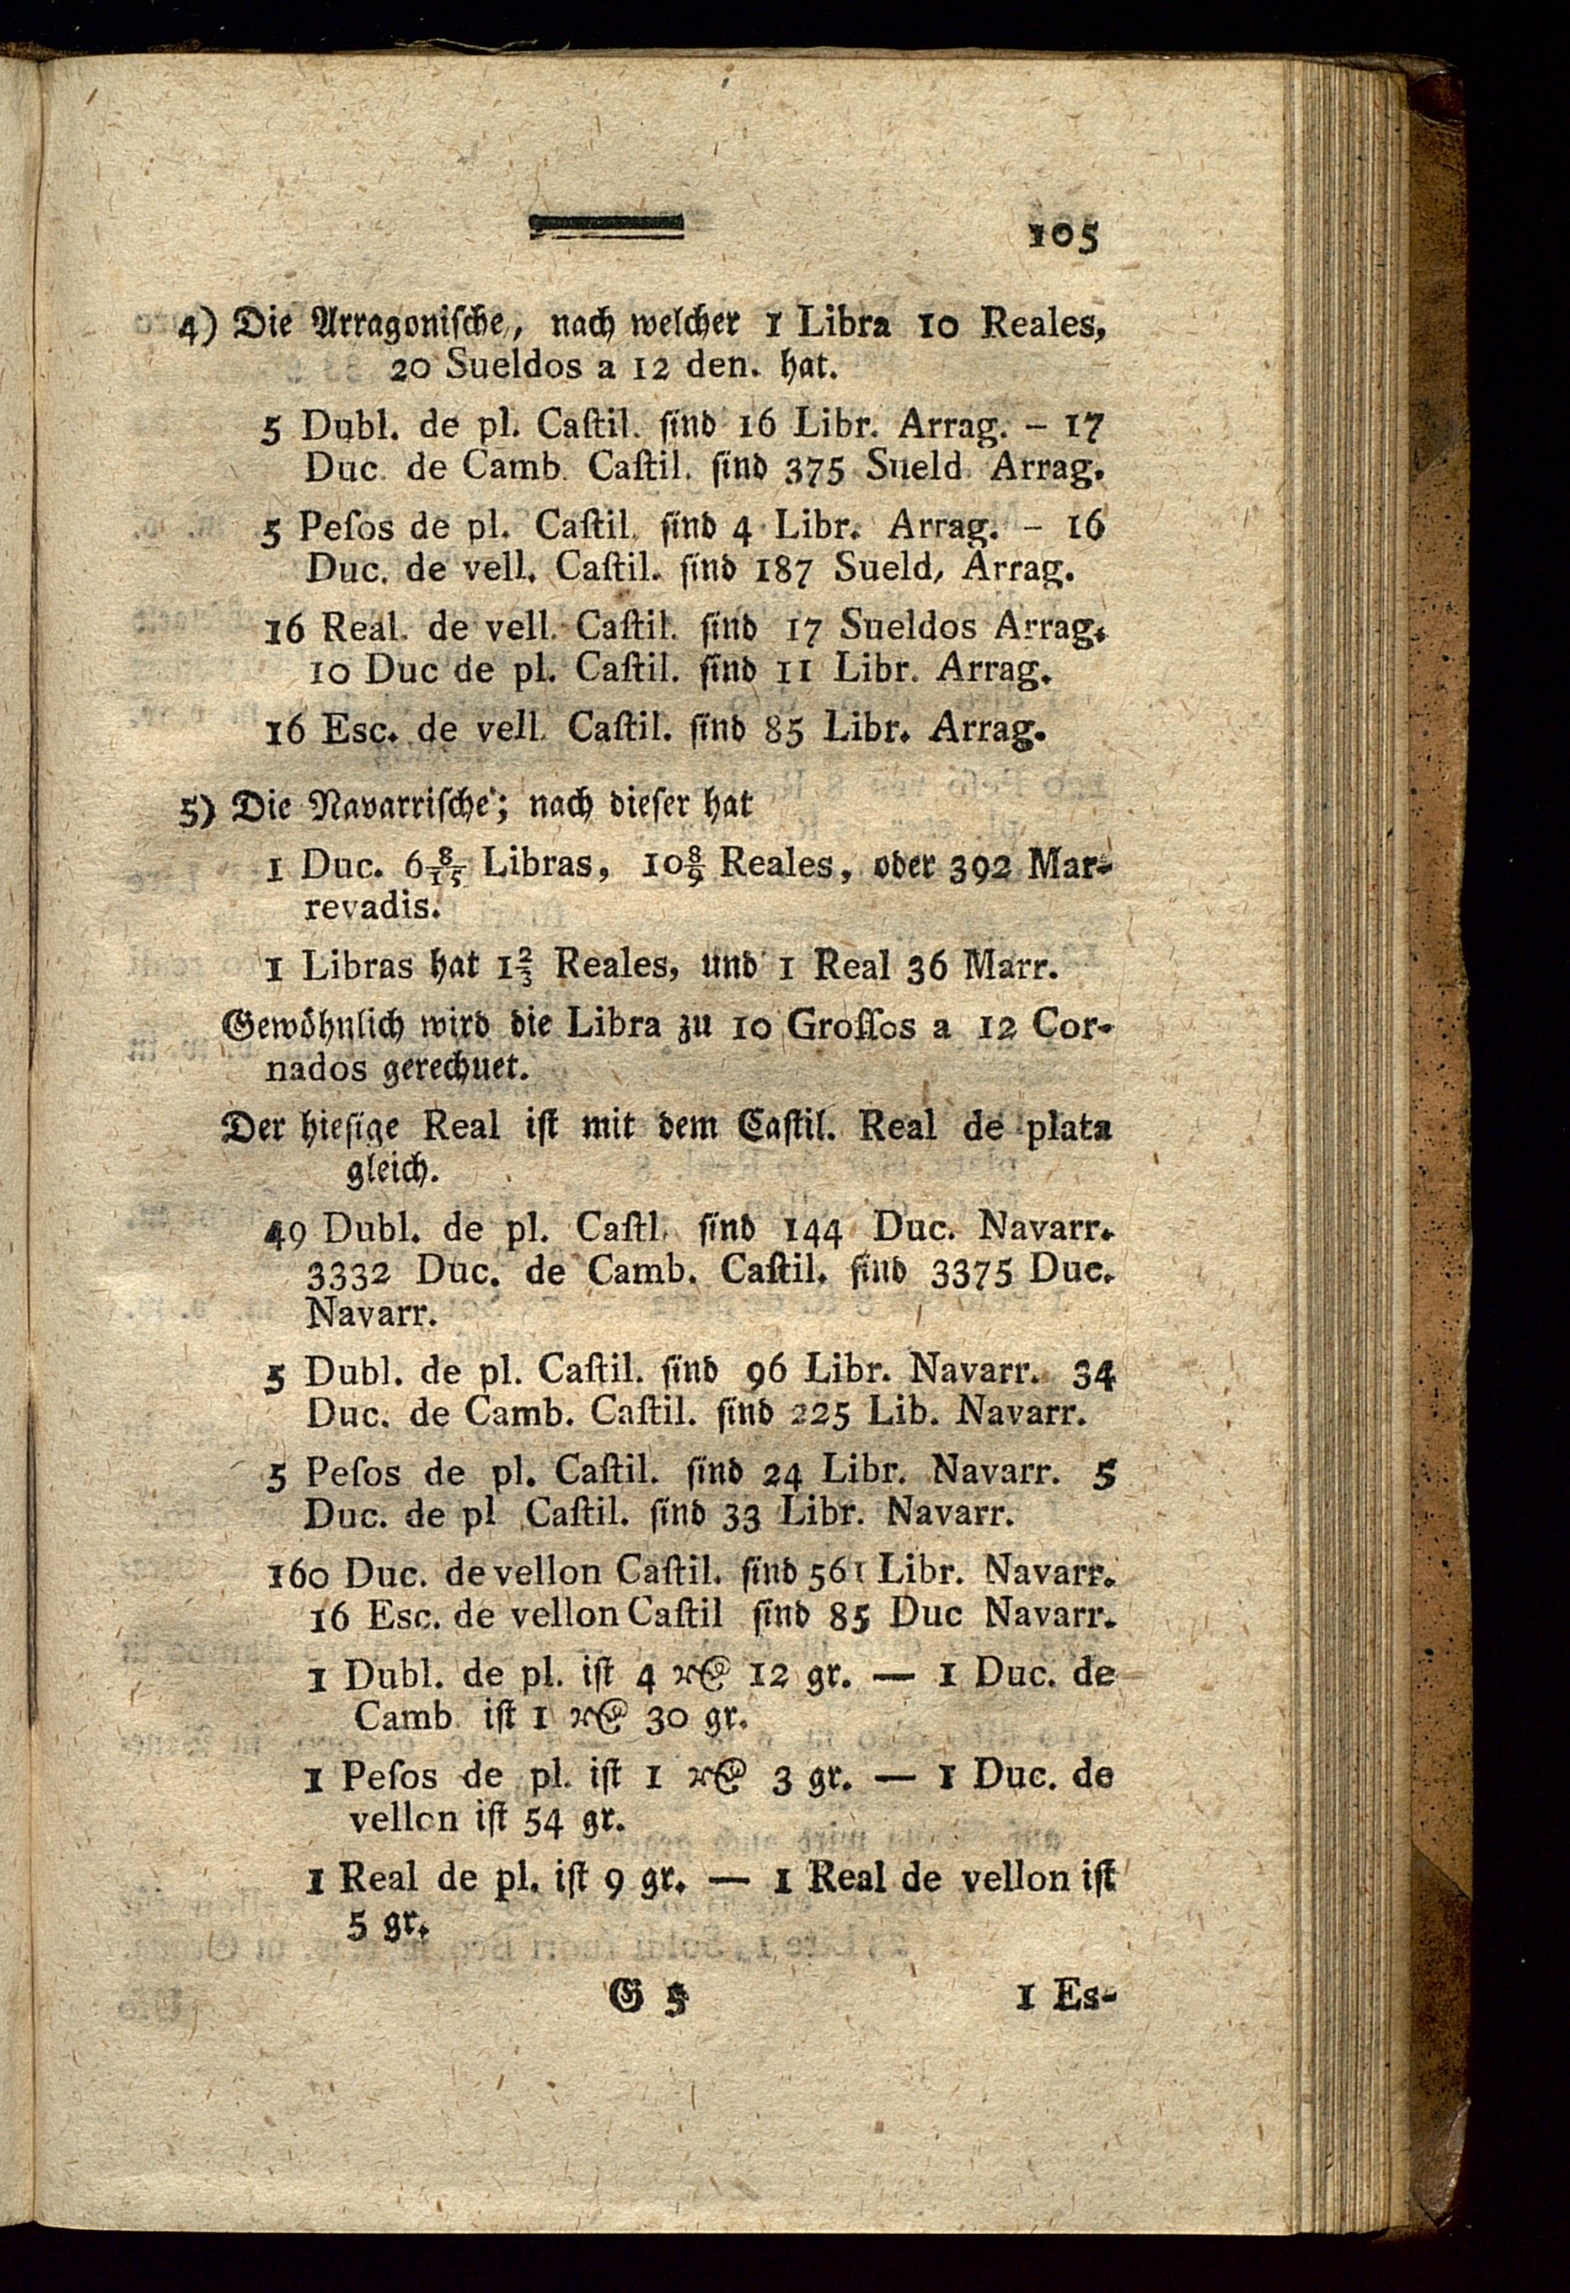 105
4) Die Arragoniſche, nach welcher 1 Libra 10 Reales,
20 Sueldos a 12 den. hat.
5 Dubl. de pl. Caſtil. ſind 16 Libr. Arrag. – 17
Duc. de Camb. Caſtil. ſind 375 Sueld. Arrag.
5 Peſos de pl. Caſtil. ſind 4 Libr. Arrag. – 16
Duc. de vell. Caſtil. ſind 187 Sueld, Arrag.
16 Real. de vell. Caſtil. ſind 17 Sueldos Arrag.
10 Duc de pl. Caſtil. ſind 11 Libr. Arrag.
16 Esc. de vell. Caſtil. ſind 85 Libr. Arrag.
5) Die Navarriſche; nach dieſer hat
1 Duc. 6 8/15 Libras, 10 8/9 Reales, oder 392 Mar-
revadis.
1 Libras hat 1 2/3 Reales, und 1 Real 36 Marr.
Gewöhnlich wird die Libra zu 10 Groſſos a 12 Cor-
nados gerechuet.
Der hieſige Real iſt mit dem Caſtil. Real de plata
gleich.
49 Dubl. de pl. Caſtl. ſind 144 Duc. Navarr.
3332 Duc. de Camb. Caſtil. ſind 3375 Duc.
Navarr.
5 Dubl. de pl. Caſtil. ſind 96 Libr. Navarr. 34
Duc. de Camb. Caſtil. ſind 225 Lib. Navarr.
5 Peſos de pl. Caſtil. ſind 24 Libr. Navarr. 5
Duc. de pl Caſtil. ſind 33 Libr. Navarr.
160 Duc. de vellon Caſtil. ſind 561 Libr. Navarr.
16 Esc. de vellon Caſtil ſind 85 Duc Navarr.
1 Dubl. de pl. iſt 4 12 gr. — 1 Duc. de
Camb. iſt 1 30 gr.
1 Peſos de pl. iſt 1 3 gr. — 1 Duc. de
vellon iſt 54 gr.
1 Real de pl. iſt 9 gr. — 1 Real de vellon iſt
5 gr.
G 5 1 Es-